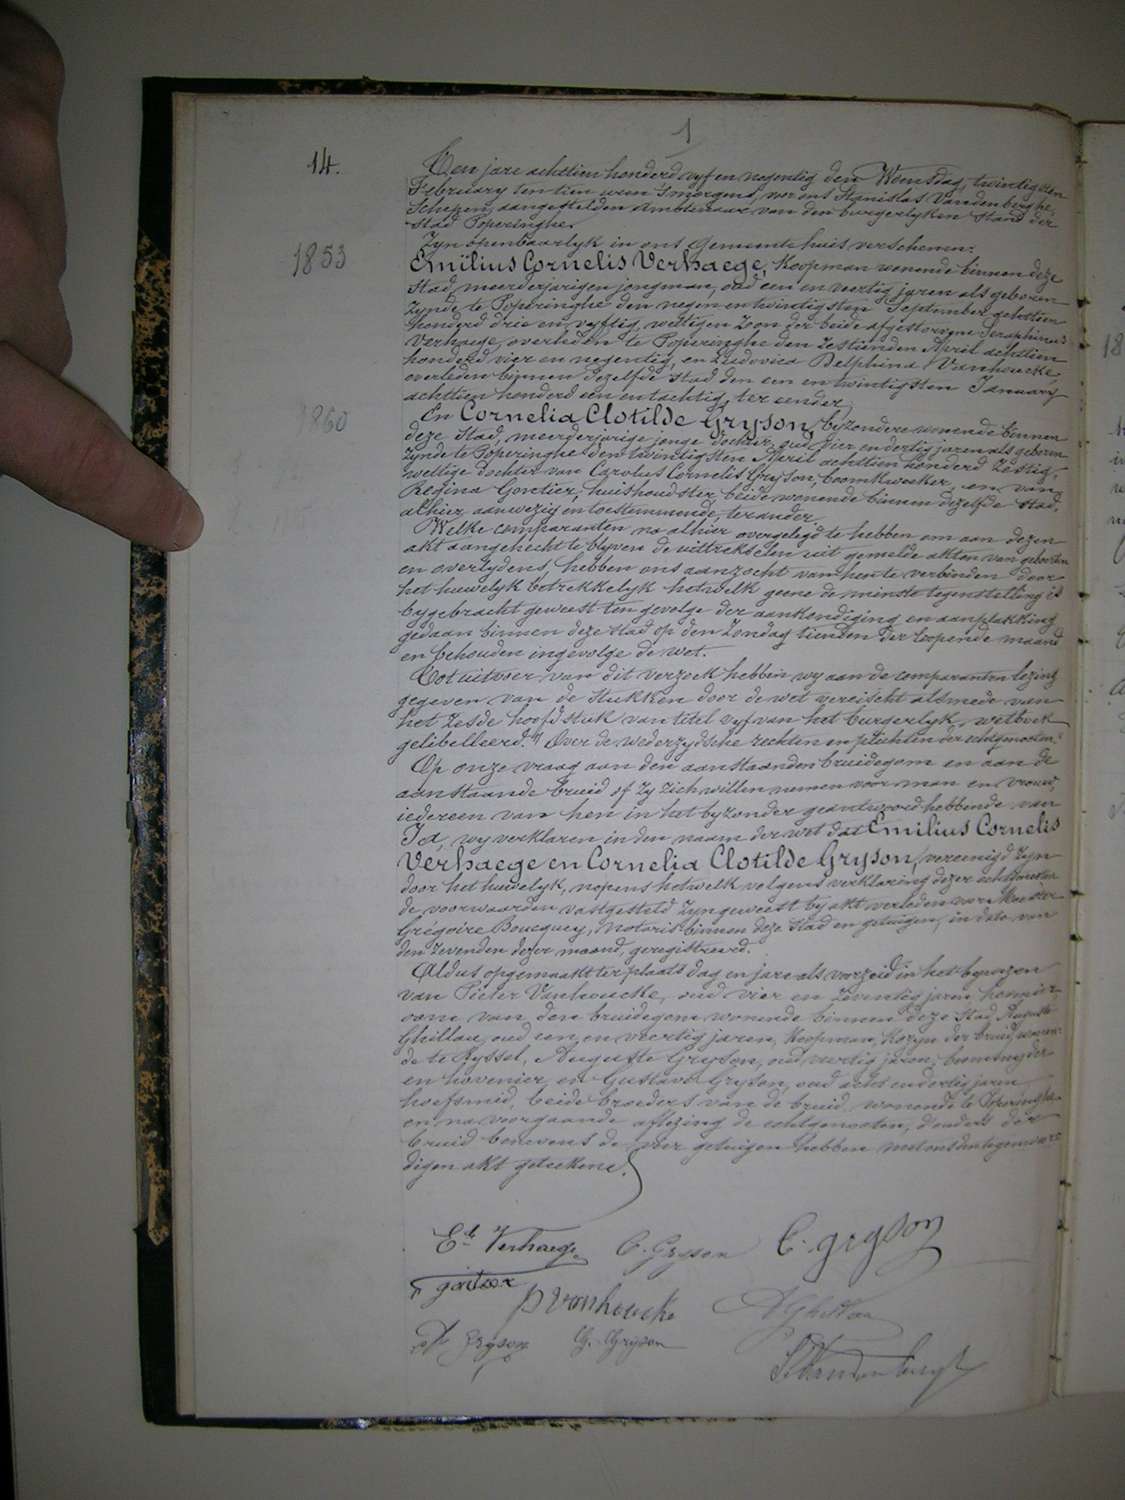 1
14.
Ten jare achttien honderd vyf en negentig den Woensdag, twintigsten
February ten tien uren s'morgens, vor ons Stanislas Vandenberghe,
Schepen, aangestelden Ambtenaar van den burgerlyken Stand der
Stad Poperinghe.
Zyn openbaarlyk in ons Gemeentehuis verschenen:
1853
Emilius Cornelis Verhaege, Koopman wonende binnen deze
Stad, meerderjarigen jongman, oud een en veertig jaren als geboren
Zynde te Poperinghe den negen en twintigsten September achttien
honderd drie en vyftig, wettigen Zoon der beide afgestorvene Seraphinus
Verhaege, overleden te Poperinghe den Zestienden April achttien
honderd vier en negentig, en Ludovica Delphina Vanhoucke,
overleden binnen dezelfde Stad den een en twintigsten January
achttien honderd een en tachtig, ter eender
1860
En Cornelia Clotilde Gryson, byzondere wonende binnen
deze Stad, meerderjarige jonge dochter, oud vier en dertig jaren als geboren
Zynde te Poperinghe den twintigsten April achttien honderd Zestig,
wettige dochter van Carolus Cornelis Gryson, boomkweeker, en van
Regina Gontier, huishoudster, beide wonende binnen dezelfde Stad,
alhier aanwezig en toestemmende, ter ander
Welke comparanten na alhier overgelegd te hebben om aan dezen
akt aangehecht te blyven de uittrekselen uit gemelde akten van geboorten
en overlydens, hebben ons aanzocht van hen te verbinden door
het huwelyk betrekkelyk hetwelk geene de minste tegenstelling is
bygebracht geweest ten gevolge der aankondiging en aanplakking
gedaan binnen deze Stad op den Zondag tienden der loopende maand
en behouden ingevolge de wet.
Tot uitvoer van dit verzoek hebben wy aan de comparanten lezing
gegeven van de Stukken door de wet vereischt alsmede van
het Zesde hoofdstuk van titel vyf van het burgerlyk wetboek
gelibelleerd: "Over de wederzydsche rechten en plichten der echtgenooten."
Op onze vraag aan den aanstaanden bruidegom en aan de
aanstaande bruid of Zy Zich willen nemen voor man en vrouw,
iedereen van hen in het byzonder geantwoord hebbende van
Ja, wy verklaren in den naam der wet dat Emilius Cornelis
Verhaege en Cornelia Clotilde Gryson, vereenigd Zyn
door het huwelyk, nopens hetwelk volgens verklaring dezer echtgenooten
de voorwaarden vastgesteld Zyn geweest by akt verleden vor Meester
Grégoire Boucquey, Notaris binnen deze Stad en getuigen, in date van
den Zevenden dezer maand, geregistreerd.
Aldus opgemaakt ter plaats dag en jare als vorzeid in het bywezen
van Pieter Vanhoucke, oud vier en Zeventig jaren, hovenier,
oom van den bruidegom wonende binnen deze Stad, Auguste
Ghillau, oud een en veertig jaren, Koopman, Kozyn der bruid, wonen-
de te Ryssel, Auguste Gryson, oud veertig jaren, boomsnyder
en hovenier, en Gustave Gryson, oud acht en dertig jaren
hoefsmid, beide broeders van de bruid, wonende te Poperinghe
en na voorgaande aflezing de echtgenooten, d'ouders der
bruid benevens de vier getuigen hebben met ons den tegenwoor-
digen akt geteekend.
Ed Verhaege C. Gryson C. Gryson
r gontier
P Vanhoucke AGhillau
A Gryson G. Gryson
S. Vandenberghe